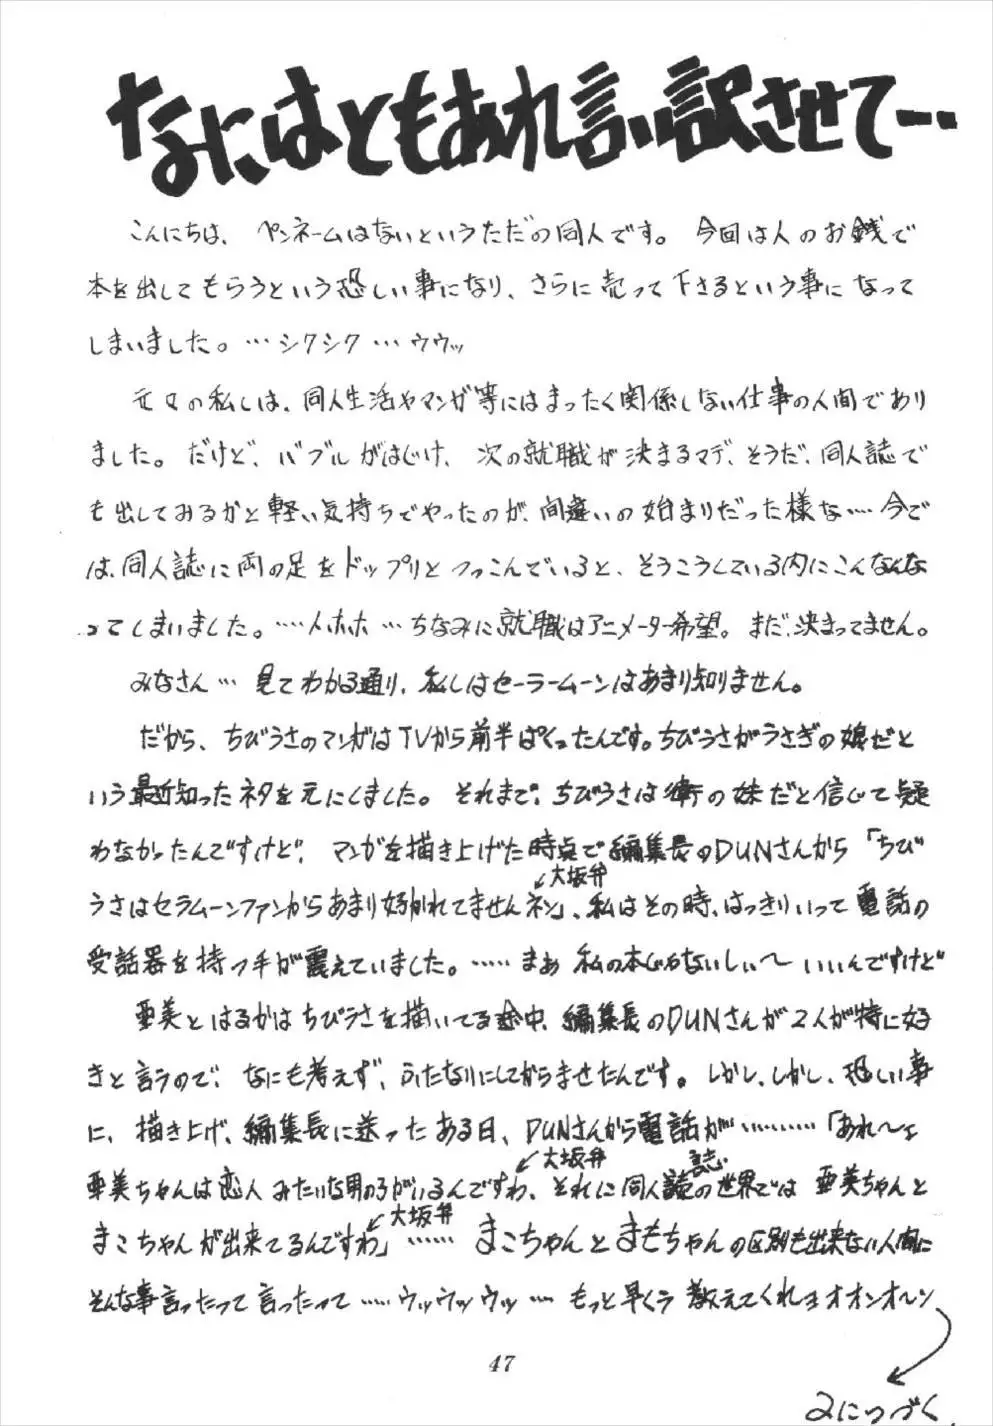 なにはともあれ言い訳させて…
こんにちは、ペンネームはないというただの同人です。今回は人のお銭で
本を出してもらうという恐しい事になり、さらに売って下さるという事になって
しまいました。…シクシク…ウウッ
元々の私しは、同人生活やマンガ等にはまったく関係しない仕事の人間であり
ました。だけど、バブルがはじけ、次の就職が決まるマデ、そうだ、同人誌で
も出してみるかと軽い気持ちでやったのが、間違いの始まりだった様な…今で
は、同人誌に両の足をドップリとつっこんでいると、そうこうしている内にこんなんな
ってしまいました。……ホホ…ちなみに就職はアニメーター希望。まだ、決まってません。
みなさん…見てわかる通り、私しはセーラームーンはあまり知りません。
だから、ちびうさのマンガはTVから前半ぱくったんです。ちびうさがうさぎの娘だと
いう最近知ったネタを元にしました。それまで、ちびうさは衛の妹だと信じて疑
わなかったんですけど、マンガを描き上げた時点で編集長のDUNさんから「ちび
↙大坂弁
うさはセラムーンファンからあまり好かれてませんネン」、私はその時、はっきりいって電話の
受話器を持つ手が震えていました。……まあ私の本じゃないしぃ〜いいんですけど
亜美とはるかはちびうさを描いてる途中、編集長のDUNさんが2人が特に好
きと言うので、なにも考えず、ふたなりにしてからませたんです。しかし、しかし、恐しい事
に、描き上げ、編集長に送ったある日、DUNさんから電話が…………「あれ〜ェ
↙大坂弁 誌
亜美ちゃんは恋人みたいな男の子がいるんですわ、それに同人誌の世界では亜美ちゃんと
↙大坂弁
まこちゃんが出来てるんですわ」……まこちゃんとまもちゃんの区別も出来ない人間に
そんな事言ったって言ったって……ウッウッウッ…もっと早くう教えてくれョオオンオーン
47
2につづく